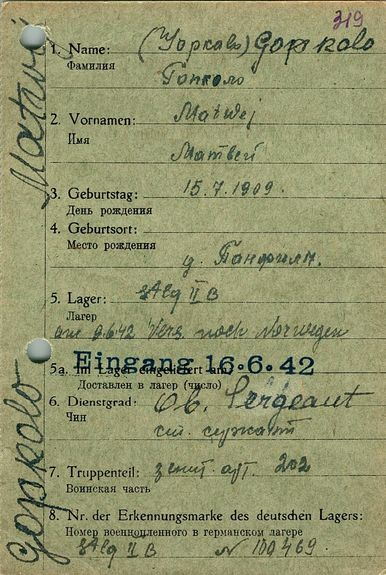 319
1. Name: (Горкавъ) Gorkolo
Фамилия
Горколо
2. Vornamen: Matwej
Имя
Матвей
3. Geburtstag: 15.7.1909.
День рождения
4. Geburtsort:
Место рождения
д.
5. Lager: Stlg II B
Лагер
am 9.6.42 Vers. nach Norwegen
Eingang 16.6.42
5a. Im Lager eingeliefert am:
Доставлен в лагер (число)
6. Dienstgrad: Ob. Sergeant
Чин
ст. сержант
7. Truppenteil: зенит. арт. 202
Воинская часть
8. Nr. der Erkennungsmarke des deutschen Lagers:
Номер военнопленного в германском лагере
Stlg II B N 100469.
Gorkolo Matwei